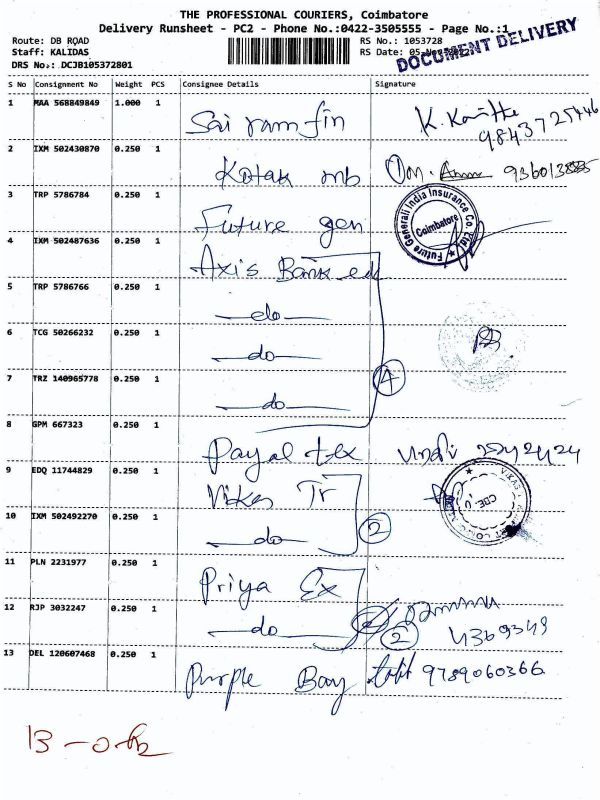 THE PROFESSIONAL COURIERS, Coimbatore
Delivery Runsheet - PC2 - Phone No.:0422-3505555 - Page No.:1
Route: DB ROAD
RS No.: 1053728
Staff: KALIDAS
RS Date: 05-Nov-2022
DOCUMENT DELIVERY
DRS No.: DCJB105372801
S No Consignment No Weight PCS Consignee Details Signature
1 MAA 568849849 1.000 1 Sai ram fin
9843725446
2 IXM 502430870 0.250 1 Kotak mb
3 TRP 5786784 0.250 1 Future gen
Future Generali India Insurance Co. Ltd. Coimbatore
4 IXM 502487636 0.250 1 Axis Bank
5 TRP 5786766 0.250 1 do
6 TCG 50266232 0.250 1 do
7 TRZ 140965778 0.250 1 do
4
8 GPM 667323 0.250 1 Payal tex
9 EDQ 11744829 0.250 1 Vikas Tr
VIKAS
10 IXM 502492270 0.250 1 do
2
11 PLN 2231977 0.250 1 Priya Ex
12 RJP 3032247 0.250 1 do
2
13 DEL 120607468 0.250 1 Purple Bay
9789060366